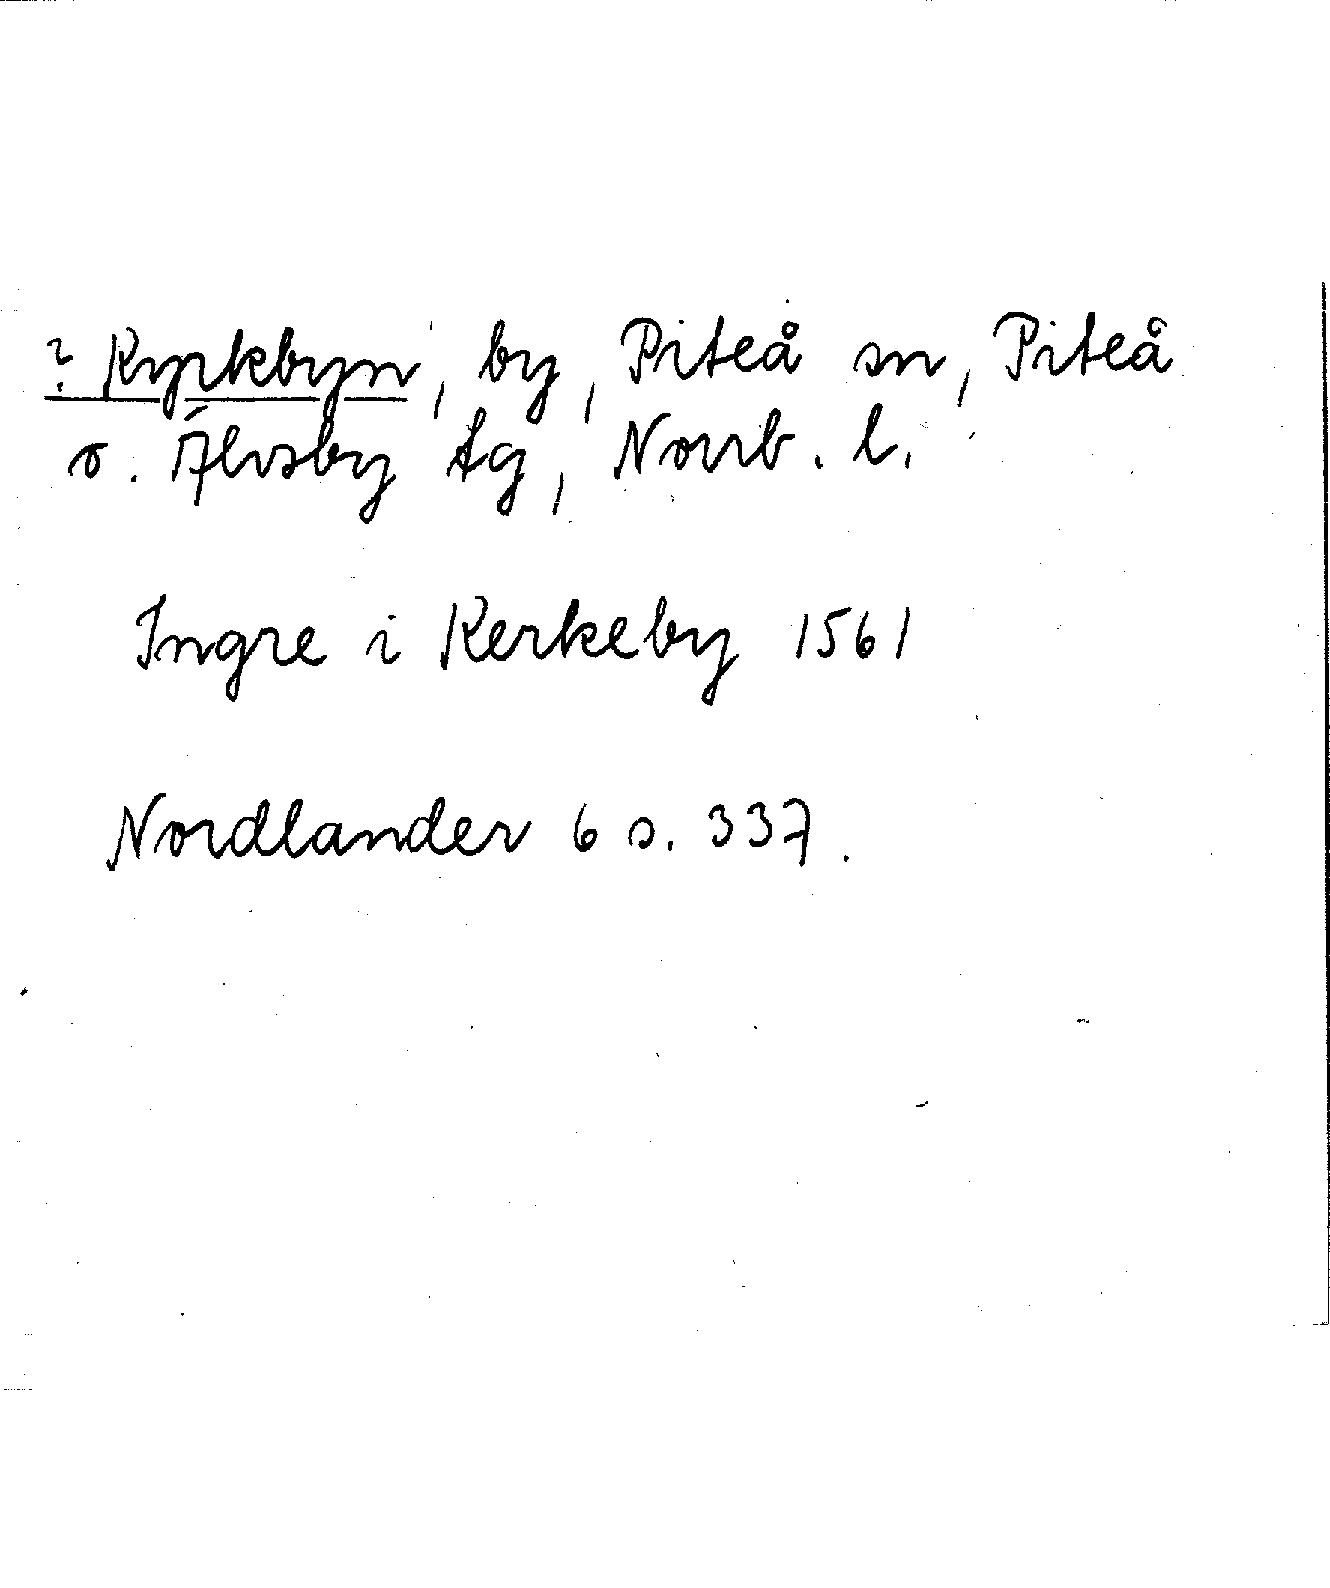 ? Kyrkbyn, by, Piteå sn, Piteå
o. Älvsby tg, Norrb. l.
Ingre i Kerkeby 1561
Nordlander 6 s. 337.